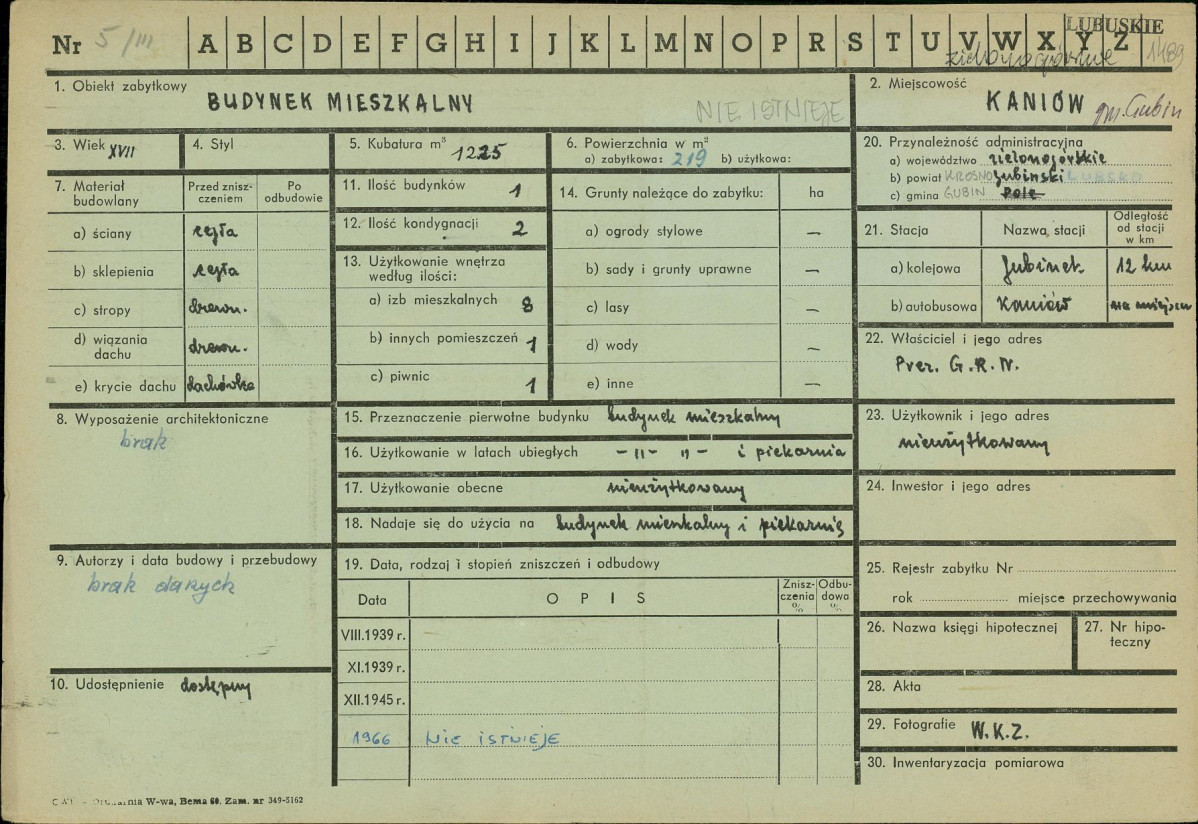 LUBUSKIE
Nr 5/III A B C D E F G H I J K L M N O P R S T U V W X Y Z
zielonogórskie 1489
1. Obiekt zabytkowy
BUDYNEK MIESZKALNY
NIE ISTNIEJE
2. Miejscowość
KANIÓW gm. Gubin
3. Wiek XVII
4. Styl
5. Kubatura m³ 1225
6. Powierzchnia w m²
a) zabytkowa: 219 b) użytkowa:
7. Materiał budowlany
Przed znisz-czeniem
Po odbudowie
a) ściany cegła
b) sklepienia cegła
c) stropy drewn.
d) wiązania dachu drewn.
e) krycie dachu dachówka
11. Ilość budynków 1
12. Ilość kondygnacji 2
13. Użytkowanie wnętrza według ilości:
a) izb mieszkalnych 8
b) innych pomieszczeń 1
c) piwnic 1
14. Grunty należące do zabytku: ha
a) ogrody stylowe —
b) sady i grunty uprawne —
c) lasy —
d) wody —
e) inne —
20. Przynależność administracyjna
a) województwo zielonogórskie
b) powiat KROSNO gubiński LUBSKO
c) gmina GUBIN Pole
21. Stacja
Nazwa stacji
Odległość od stacji w km
a) kolejowa Gubinek 12 km
b) autobusowa Kaniów na miejscu
22. Właściciel i jego adres
Prez. G.R.N.
8. Wyposażenie architektoniczne
brak
15. Przeznaczenie pierwotne budynku budynek mieszkalny
16. Użytkowanie w latach ubiegłych —"— "— i piekarnia
17. Użytkowanie obecne nieużytkowany
18. Nadaje się do użycia na budynek mieszkalny i piekarnię
23. Użytkownik i jego adres
nieużytkowany
24. Inwestor i jego adres
9. Autorzy i data budowy i przebudowy
brak danych
19. Data, rodzaj i stopień zniszczeń i odbudowy
Data
OPIS
Znisz-czenia %
Odbu-dowa %
VIII.1939 r.
XI.1939 r.
XII.1945 r.
1966 Nie istnieje
25. Rejestr zabytku Nr
rok miejsce przechowywania
26. Nazwa księgi hipotecznej
27. Nr hipo-teczny
10. Udostępnienie dostępny
28. Akta
29. Fotografie W.K.Z.
30. Inwentaryzacja pomiarowa
W-wa, Bema 60. Zam. nr 349-5162